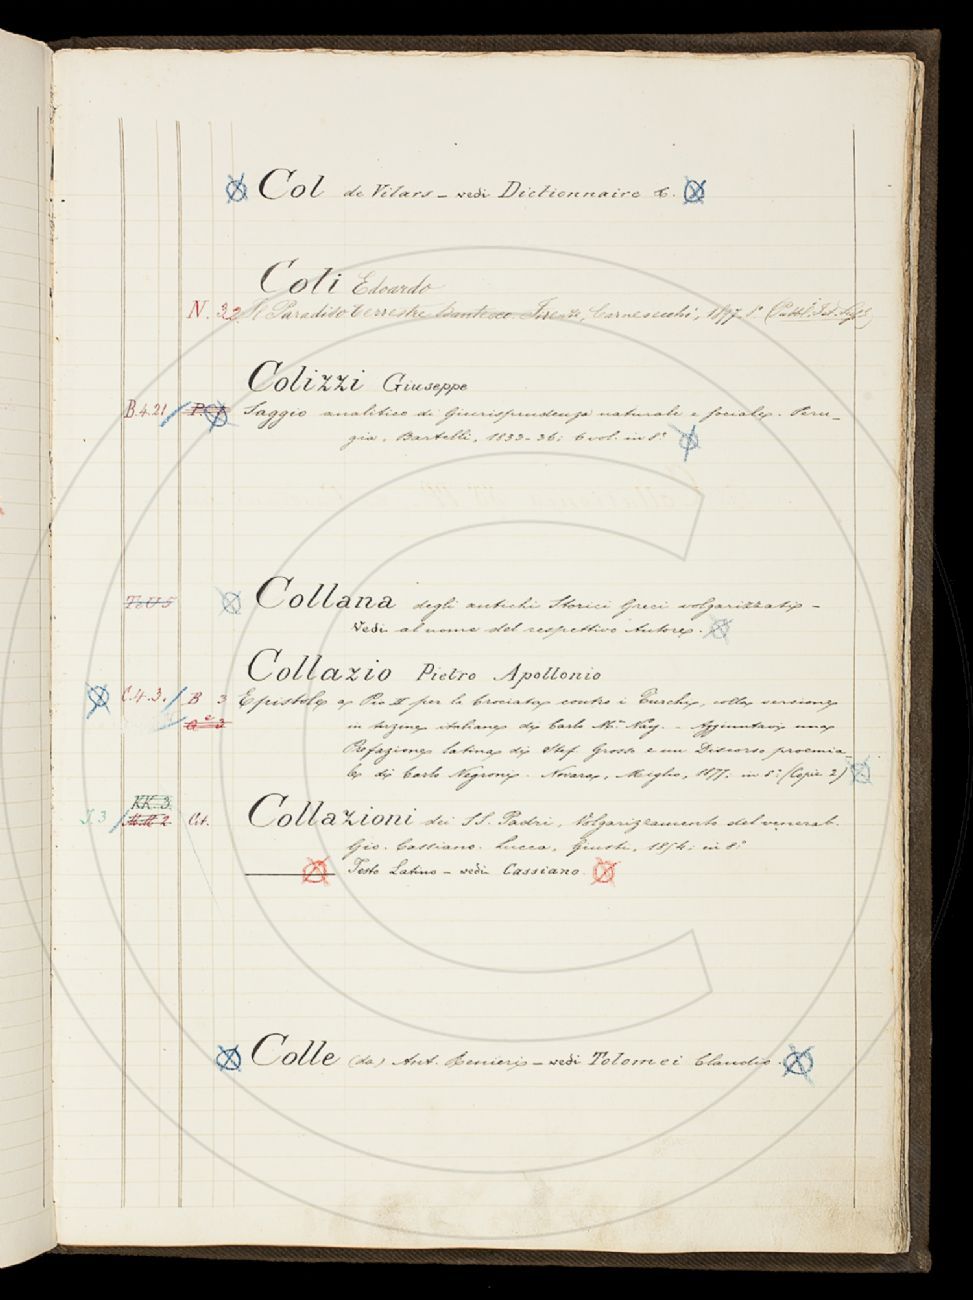 Col de Vilars – vedi Dictionnaire &.
Coli Edoardo
N. 32 Il Paradiso terrestre dantesco Firenze, Carnesecchi, 1897 8°
Colizzi Giuseppe
B.4.21 Saggio analitico di Giurisprudenza naturale e sociale. Peru-
gia, Bartelli, 1833-36; 6 vol. in 8°
Collana degli antichi Storici Greci volgarizzati –
Vedi al nome del respettivo Autore.
Collazio Pietro Apollonio
C.4.3. B 3 Epistole a Pio II per la Crociata contro i Turchi, colla versione
in terzine italiane di Carlo Neg. – Aggiuntavi una
Prefazione latina di Stef. Grosso e un Discorso proemia-
le di Carlo Negroni. Novara, Miglio, 1877. in 8° (Copie 2)
KK. 3.
Cit. Collazioni dei SS. Padri, Volgarizzamento del venerab.
Gio. Cassiano. Lucca, Giusti, 1854; in 8°
Testo Latino – vedi Cassiano.
Colle (da) Ant. Renieri – vedi Tolomei Claudio.
C